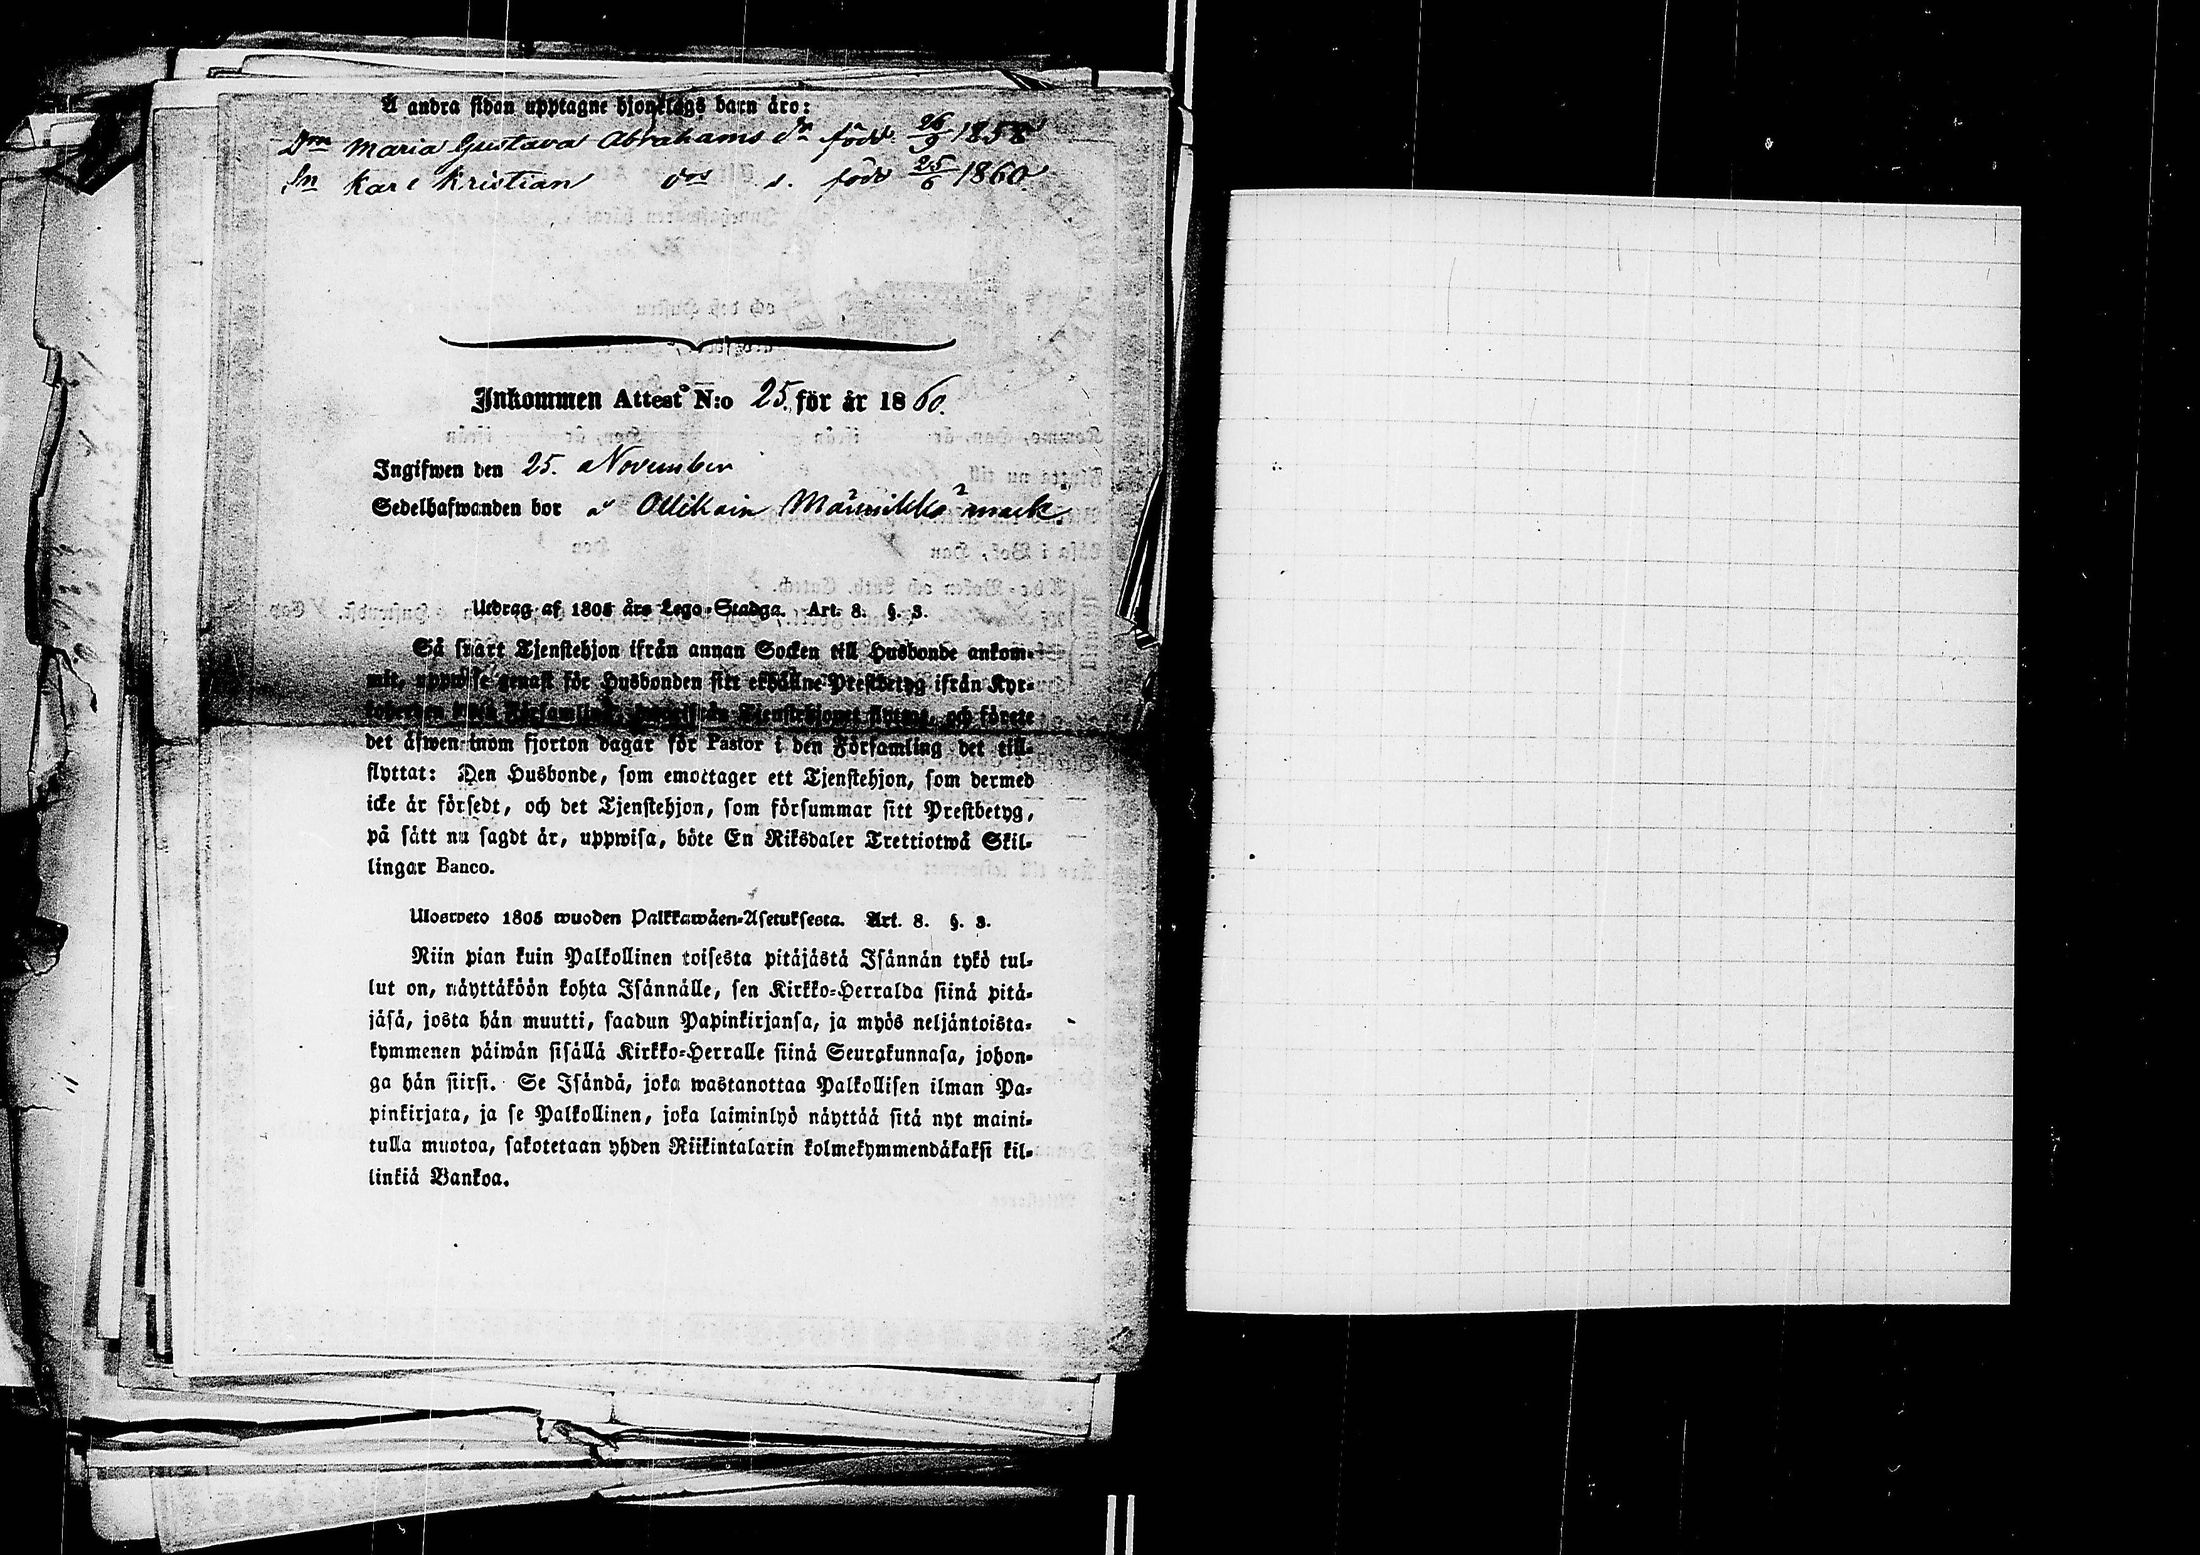 Å andra sidan upptagne hjonelags barn äro:
Dm Maria Gustava Abrahams dr född 26/9 1858
Sn Karl Kristian drs s. född 25/6 1860.
Inkommen Attest N:o 25. för år 1860.
Ingifwen den 25. November
Sedelhafwanden bor å Ollikain Männikkö mark
Utdrag af 1805 års Lego-Stadga. Art. 8. §. 3.
Så snart Tjenstehjon ifrån annan Socken till Husbonde ankom-
mit, uppwise genast för Husbonden sitt erhållne Prestbetyg ifrån Kyr-
Tjenstehjonet flyttat, och förete
det äfwen inom fjorton dagar för Pastor i den Församling det till-
flyttat: Den Husbonde, som emottager ett Tjenstehjon, som dermed
icke är försedt, och det Tjenstehjon, som försummar sitt Prestbetyg,
på sätt nu sagdt är, uppwisa, böte En Riksdaler Trettiotwå Skil-
lingar Banco.
Ulosweto 1805 wuoden Palkkawäen-Asetuksesta. Art. 8. §. 3.
Niin pian kuin Palkollinen toisesta pitäjästä Isännän tykö tul-
lut on, näyttäköön kohta Isännälle, sen Kirkko-Herralda siinä pitä-
jäsä, josta hän muutti, saadun Papinkirjansa, ja myös neljäntoista-
kymmenen päiwän sisällä Kirkko-Herralle siinä Seurakunnasa, johon-
ga hän siirsi. Se Isändä, joka wastanottaa Palkollisen ilman Pa-
pinkirjata, ja se Palkollinen, joka laiminlyö näyttää sitä nyt maini-
tulla muotoa, sakotetaan yhden Riikintalarin kolmekymmendäkaksi kil-
linkiä Bankoa.